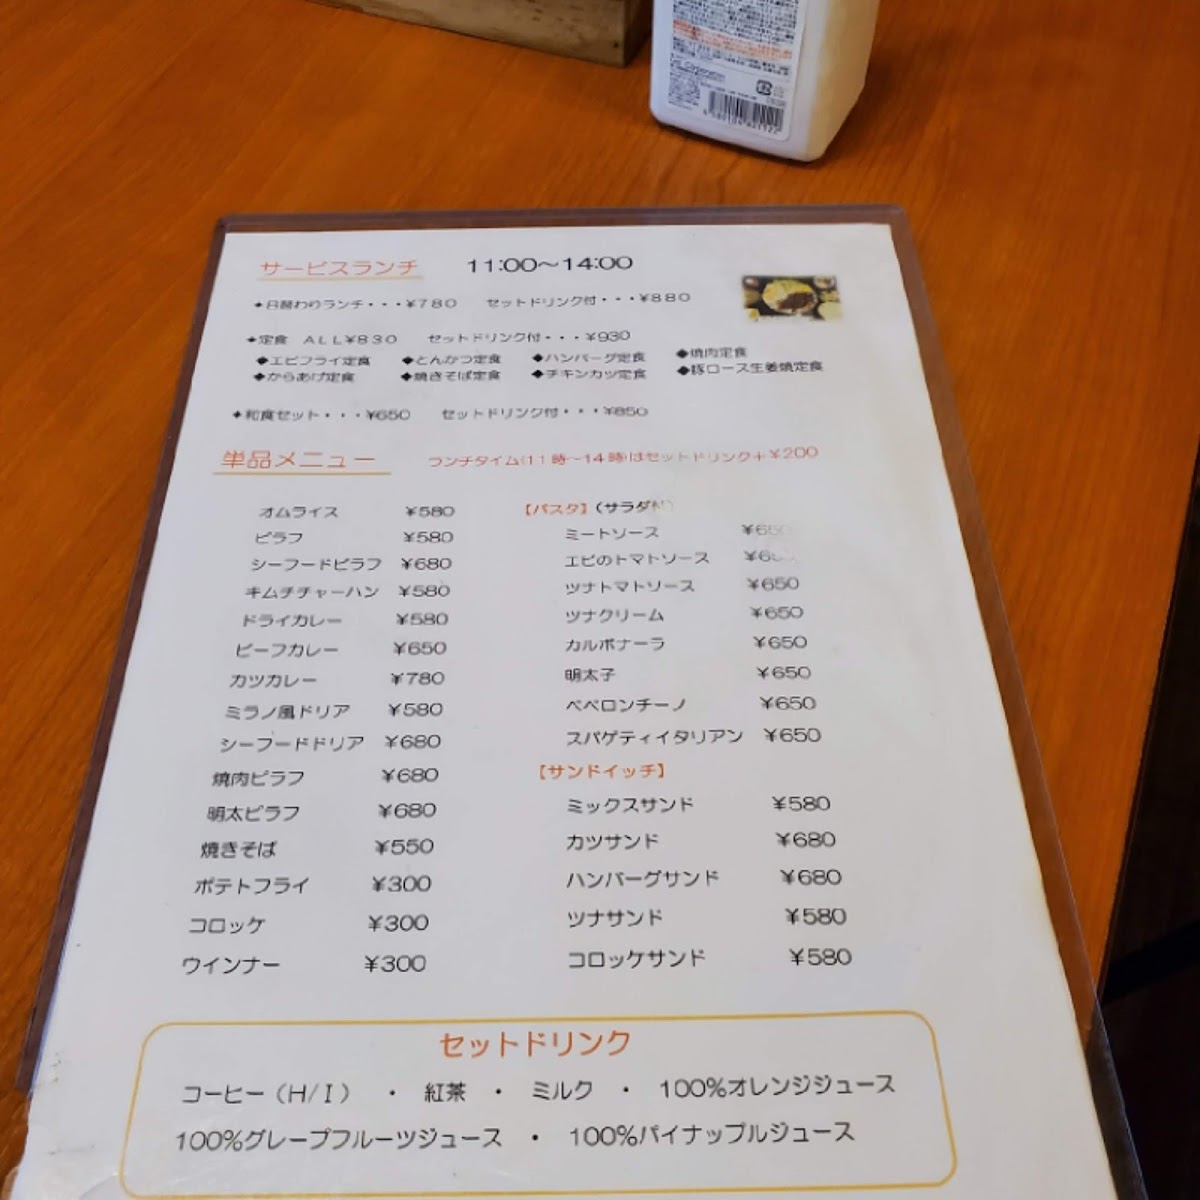 サービスランチ 11:00～14:00
✦日替わりランチ・・・¥780 セットドリンク付・・・¥880
✦定食 ALL¥830 セットドリンク付・・・¥930
◆エビフライ定食 ◆とんかつ定食 ◆ハンバーグ定食 ◆焼肉定食
◆からあげ定食 ◆焼きそば定食 ◆チキンカツ定食 ◆豚ロース生姜焼定食
✦和食セット・・・¥650 セットドリンク付・・・¥850
単品メニュー ランチタイム(11時～14時)はセットドリンク＋¥200
オムライス ¥580
ピラフ ¥580
シーフードピラフ ¥680
キムチチャーハン ¥580
ドライカレー ¥580
ビーフカレー ¥650
カツカレー ¥780
ミラノ風ドリア ¥580
シーフードドリア ¥680
焼肉ピラフ ¥680
明太ピラフ ¥680
焼きそば ¥550
ポテトフライ ¥300
コロッケ ¥300
ウインナー ¥300
【パスタ】（サラダ付）
ミートソース ¥650
エビのトマトソース
ツナトマトソース ¥650
ツナクリーム ¥650
カルボナーラ ¥650
明太子 ¥650
ペペロンチーノ ¥650
スパゲティイタリアン ¥650
【サンドイッチ】
ミックスサンド ¥580
カツサンド ¥680
ハンバーグサンド ¥680
ツナサンド ¥580
コロッケサンド ¥580
セットドリンク
コーヒー（H/I） ・ 紅茶 ・ ミルク ・ 100%オレンジジュース
100%グレープフルーツジュース ・ 100%パイナップルジュース